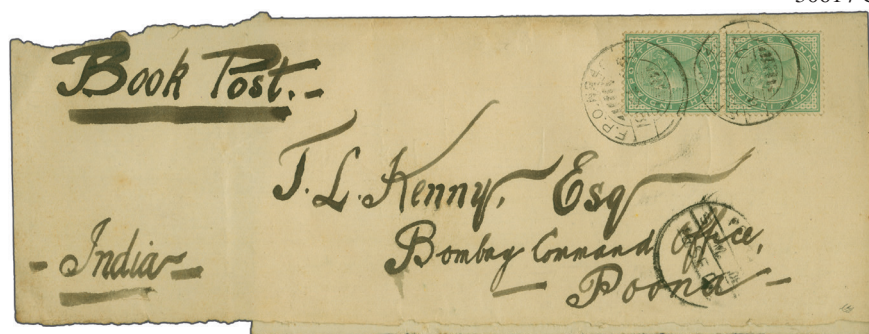 Book Post.-
T. L. Kenny, Esq
Bombay Command Office,
- Poona -
- India -
F.P.O. No